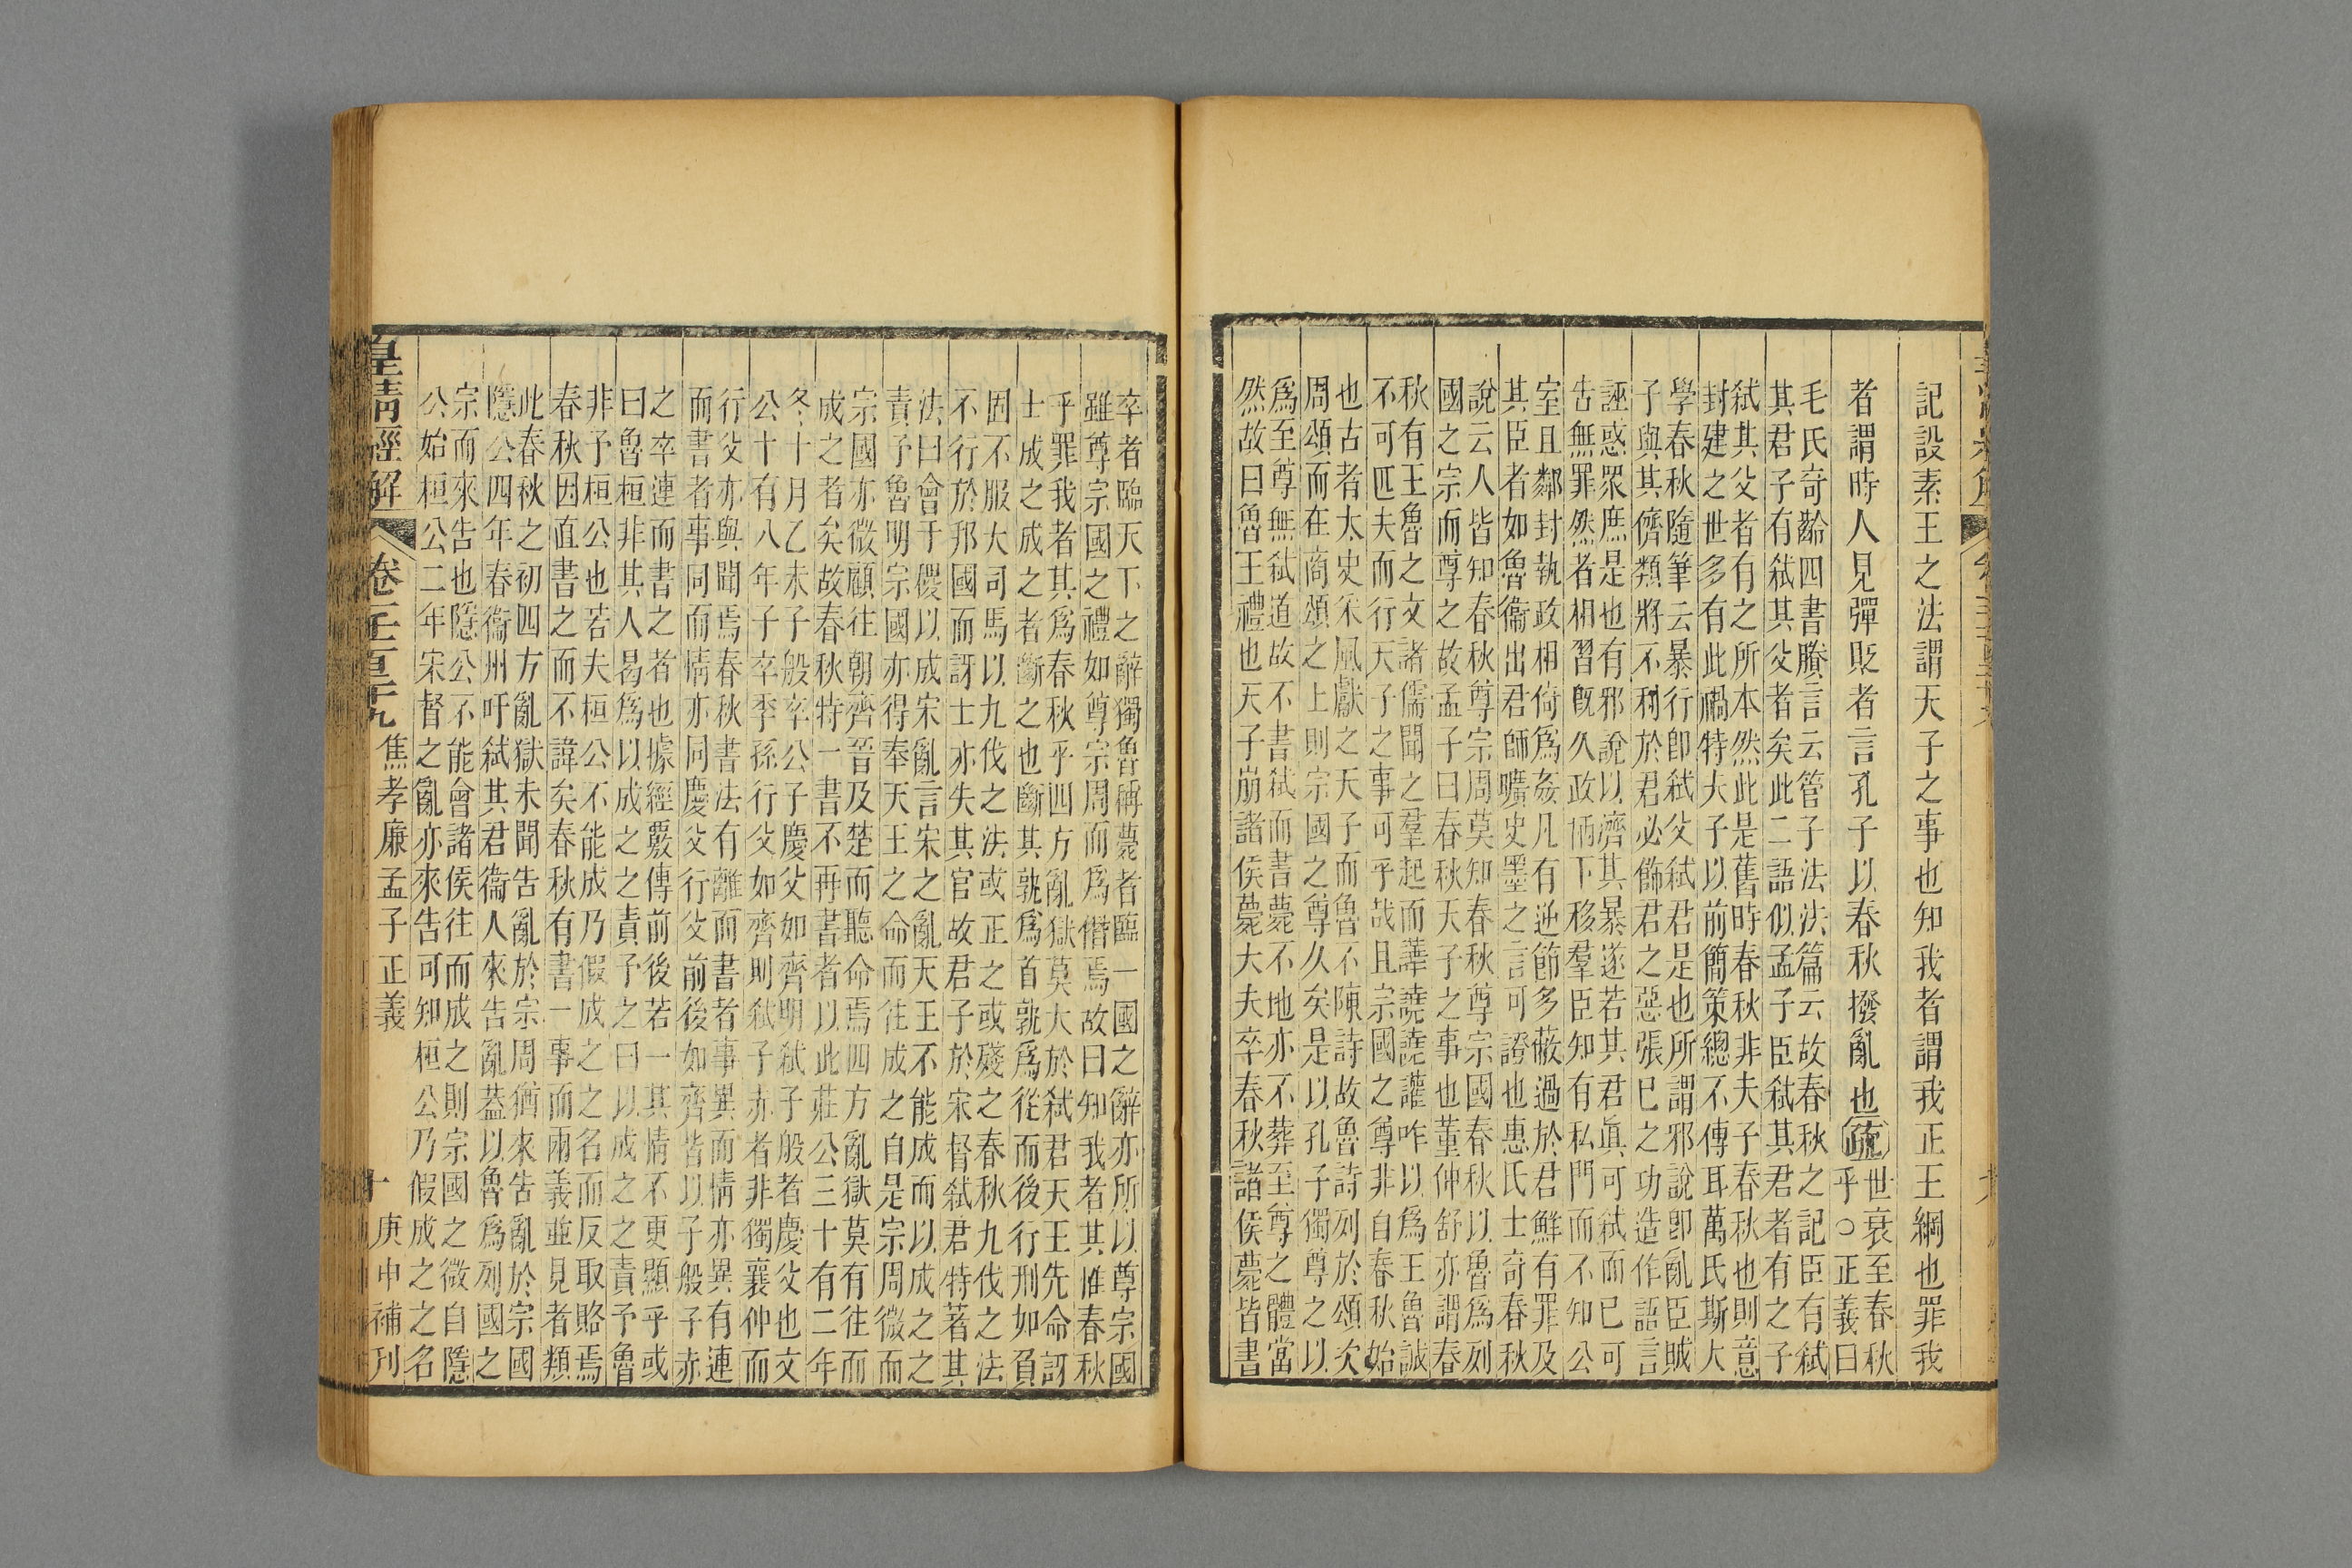 記設素王之法謂天子之事也知我者謂我正王綱也罪我
者謂時人見彈貶者言孔子以春秋撥亂也疏世衰至春秋
乎○正義曰
毛氏奇齡四書賸言云管子法法篇云故春秋之記臣有弑
其君子有弑其父者矣此二語似孟子臣弑其君者有之子
弑其父者有之所本然此是舊時春秋非夫子春秋也則意
封建之世多有此禍特夫子以前簡策總不傳耳萬氏斯大
學春秋隨筆云暴行卽弑父弑君是也所謂邪說卽亂臣賊
子與其儕類將不利於君必飾君之惡張已之功造作語言
誣惑眾庶是也有邪說以濟其暴遂若其君眞可弑而已可
告無罪然者相習旣久政柄下移羣臣知有私門而不知公
室且鄰封執政相倚爲姦凡有逆節多蔽過於君鮮有罪及
其臣者如魯衞出君師曠史墨之言可證也惠氏士奇春秋
說云人皆知春秋尊宗周莫知春秋尊宗國春秋以魯爲列
國之宗而尊之故孟子曰春秋天子之事也董仲舒亦謂春
秋有王魯之文諸儒聞之羣起而譁譊譊讙咋以爲王魯誠
不可匹夫而行天子之事可乎哉且宗國之尊非自春秋始
也古者太史采風獻之天子而魯不陳詩故魯詩列於頌次
周頌而在商頌之上則宗國之尊久矣是以孔子獨尊之以
爲至尊無弑道故不書弑而書薨不地亦不葬至尊之體當
然故曰魯王禮也天子崩諸侯薨大夫卒春秋諸侯薨皆書
卒者臨天下之辭獨魯稱薨者臨一國之辭亦所以尊宗國
雖尊宗國之禮如尊宗周而爲僭焉故曰知我者其惟春秋
乎罪我者其爲春秋乎四方亂獄莫大於弑君天王先命訝
士成之成之者斷之也斷其孰爲首孰爲從而後行刑如負
固不服大司馬以九伐之法或正之或殘之春秋九伐之法
不行於邦國而訝士亦失其官故君子於宋督弑君特著其
法曰會于稷以成宋亂言宋之亂天王不能成而以成之之
責予魯明宗國亦得奉天王之命而往成之自是宗周微而
宗國亦微顧往朝齊晉及楚而聽命焉四方亂獄莫有往而
成之者矣故春秋特一書不再書者以此莊公三十有二年
冬十月乙未子般卒公子慶父如齊明弑子般者慶父也文
公十有八年子卒季孫行父如齊則弑子赤者非獨襄仲而
行父亦與聞焉春秋書法有離而書者事異而情亦異有連
而書者事同而情亦同慶父行父前後如齊皆以子般子赤
之卒連而書之者也據經覈傳前後若一其情不更顯乎或
曰魯桓非其人曷爲以成之之責予之曰以成之之責予魯
非予桓公也若夫桓公不能成乃假成之之名而反取賂焉
春秋因直書之而不諱矣春秋有書一事而兩義並見者類
此春秋之初四方亂獄未聞告亂於宗周猶來告亂於宗國
隱公四年春衞州吁弑其君衞人來告亂蓋以魯爲列國之
宗而來告也隱公不能會諸侯往而成之則宗國之微自隱
公始桓公二年宋督之亂亦來告可知桓公乃假成之之名
皇清經解 卷一千一百二十九 焦孝廉孟子正義 十一 庚申補刊